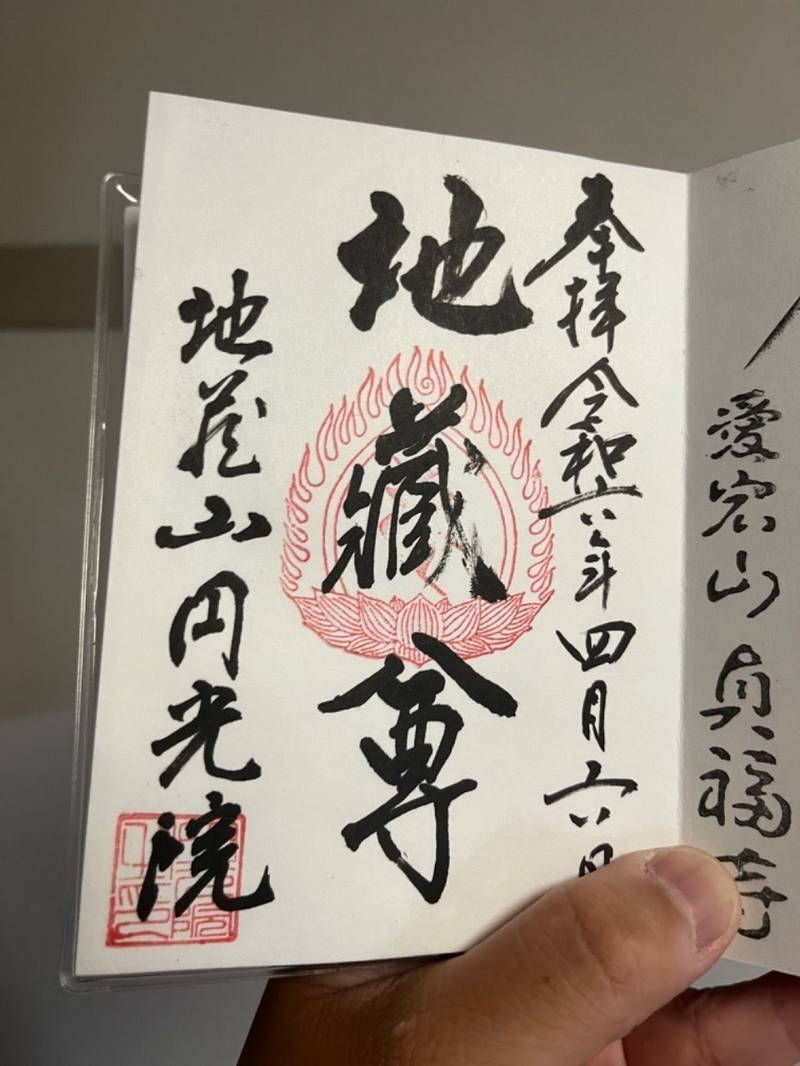 愛宕山 真福寺
奉拝 令和六年四月六日
地藏尊
地蔵山円光院